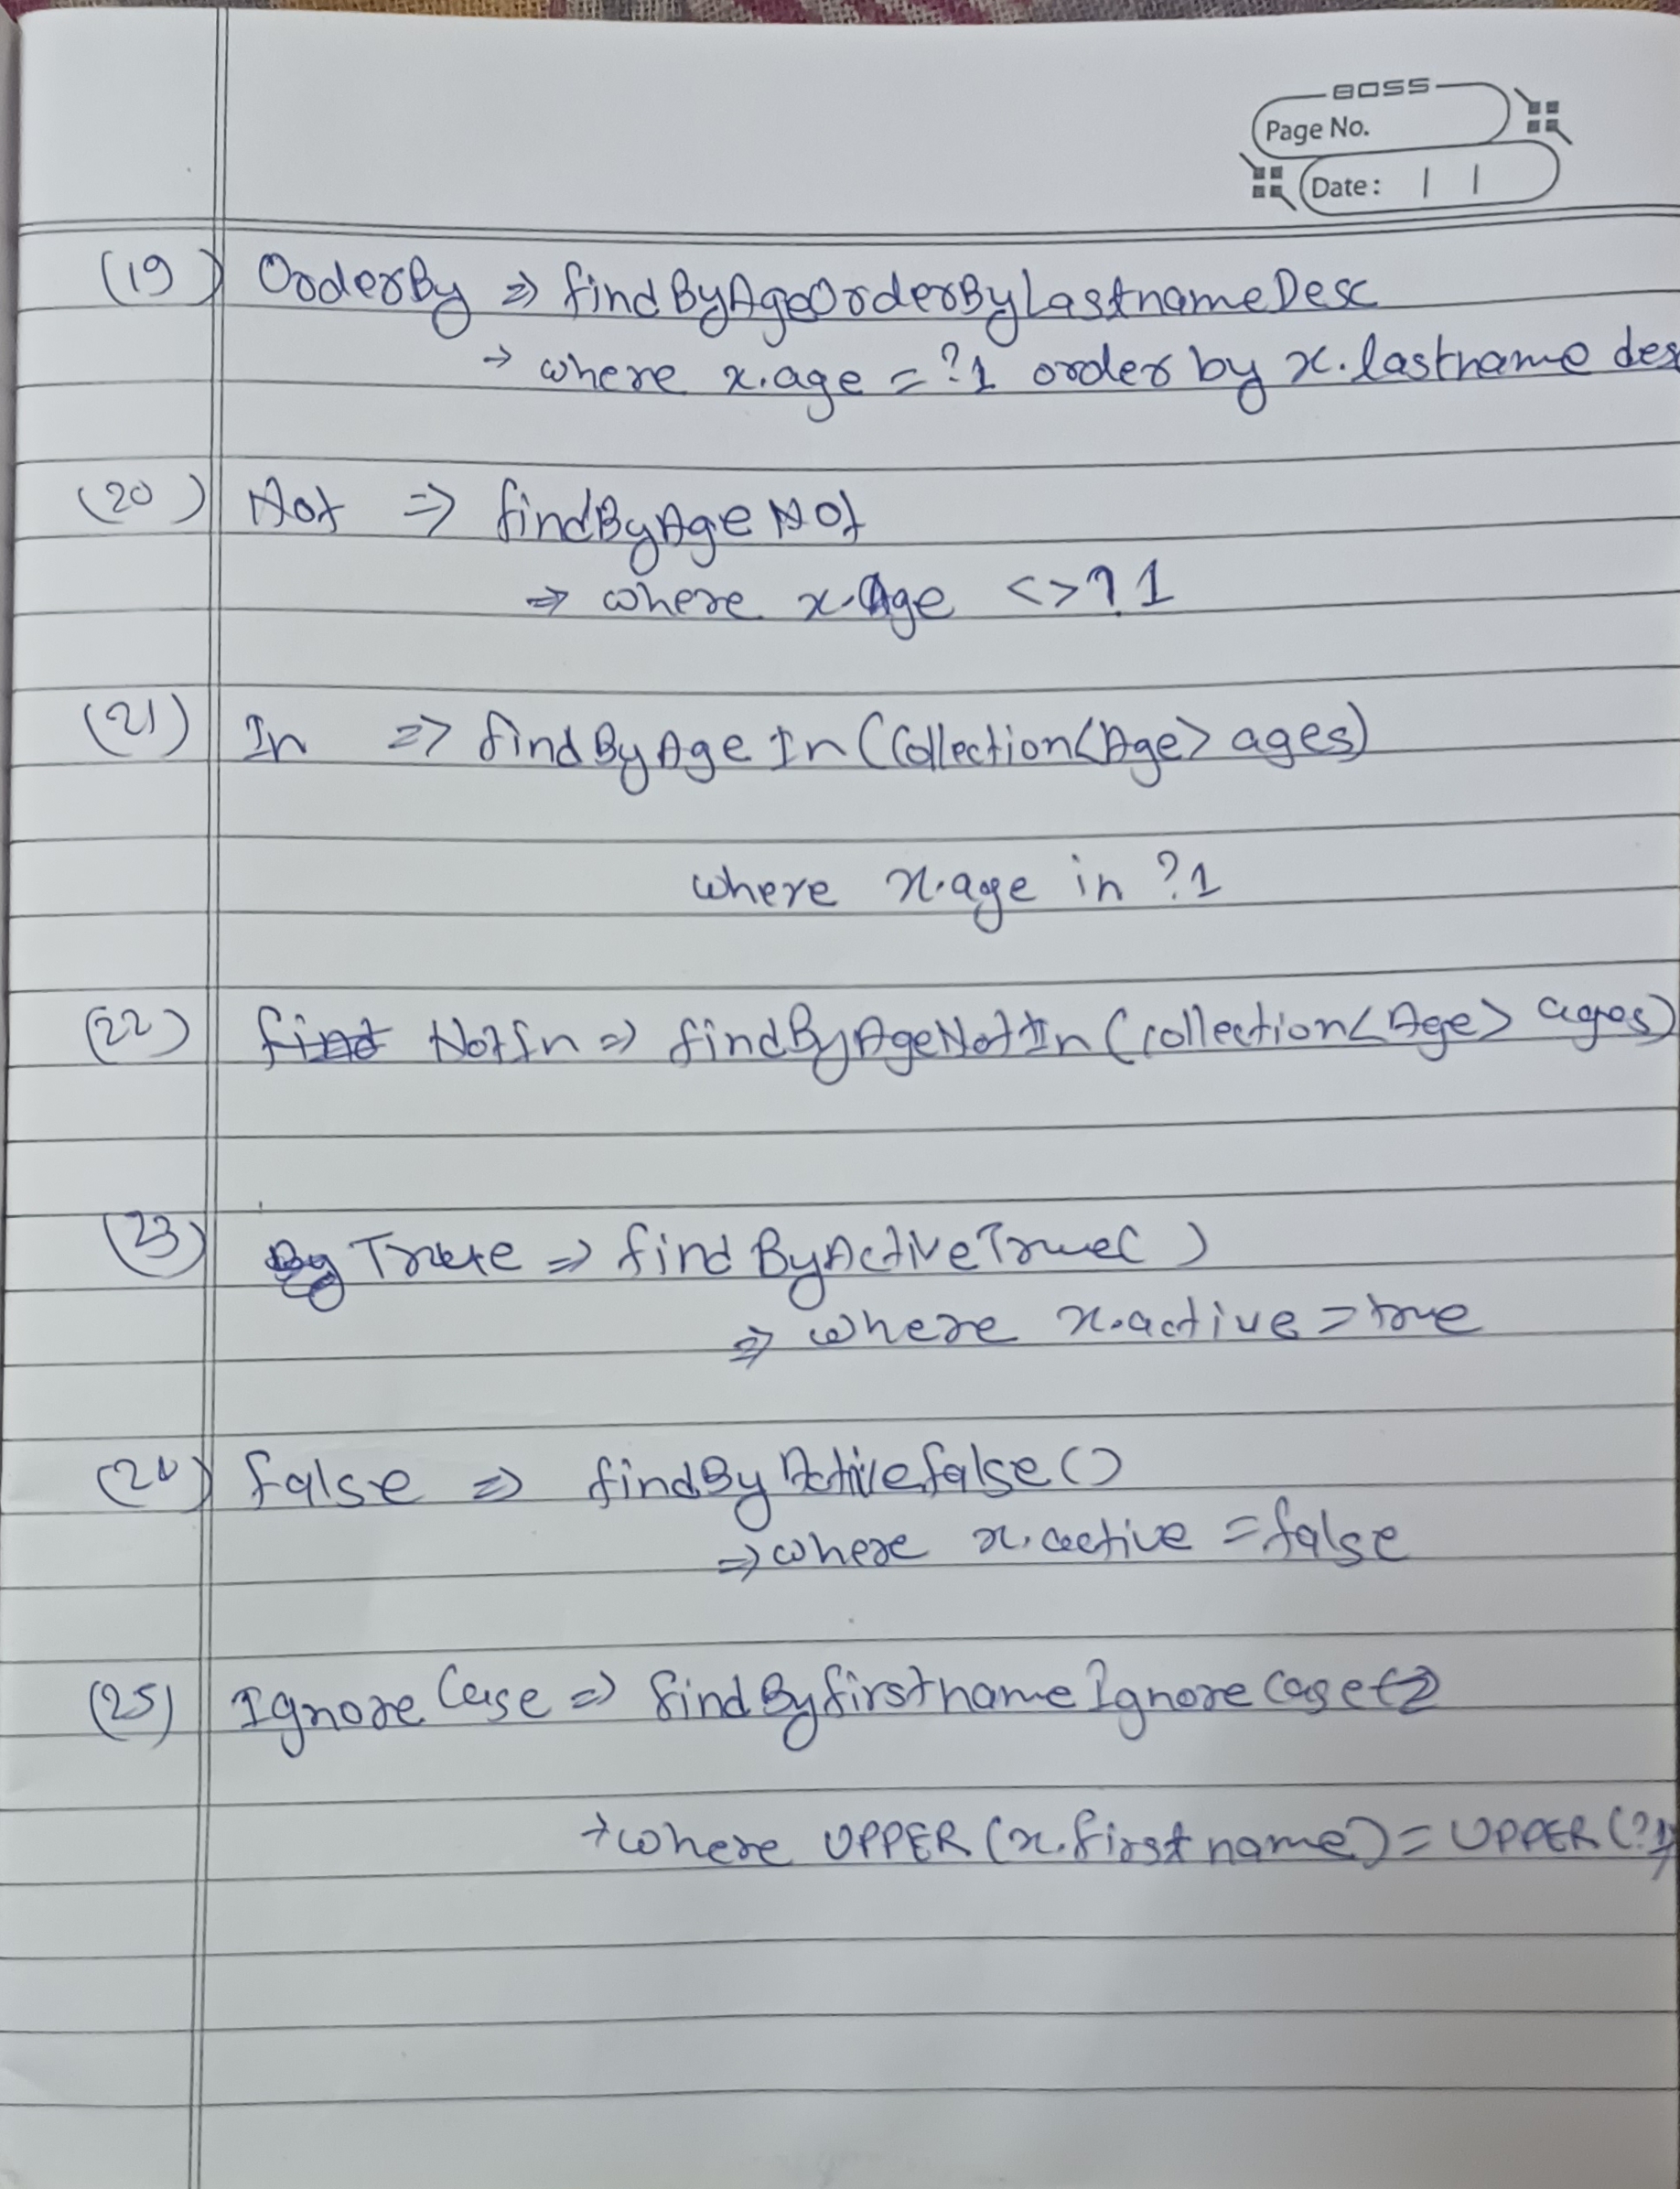 BOSS
Page No.
Date: | |
(19) OrderBy => findByAgeOrderByLastnameDesc
→ where x.age = ?1 order by x.lastname des
(20) Not => findByAgeNot
=> where x.Age <> ?1
(21) In => findByAgeIn(Collection<Age> ages)
where x.age in ?1
(22) NotIn => findByAgeNotIn(collection<Age> ages)
(23) True => findByActiveTrue()
=> where x.active = true
(24) false => findByActivefalse()
=> where x.active = false
(25) IgnoreCase => findByfirstnameIgnorecase
→ where UPPER(x.firstname) = UPPER(?1)